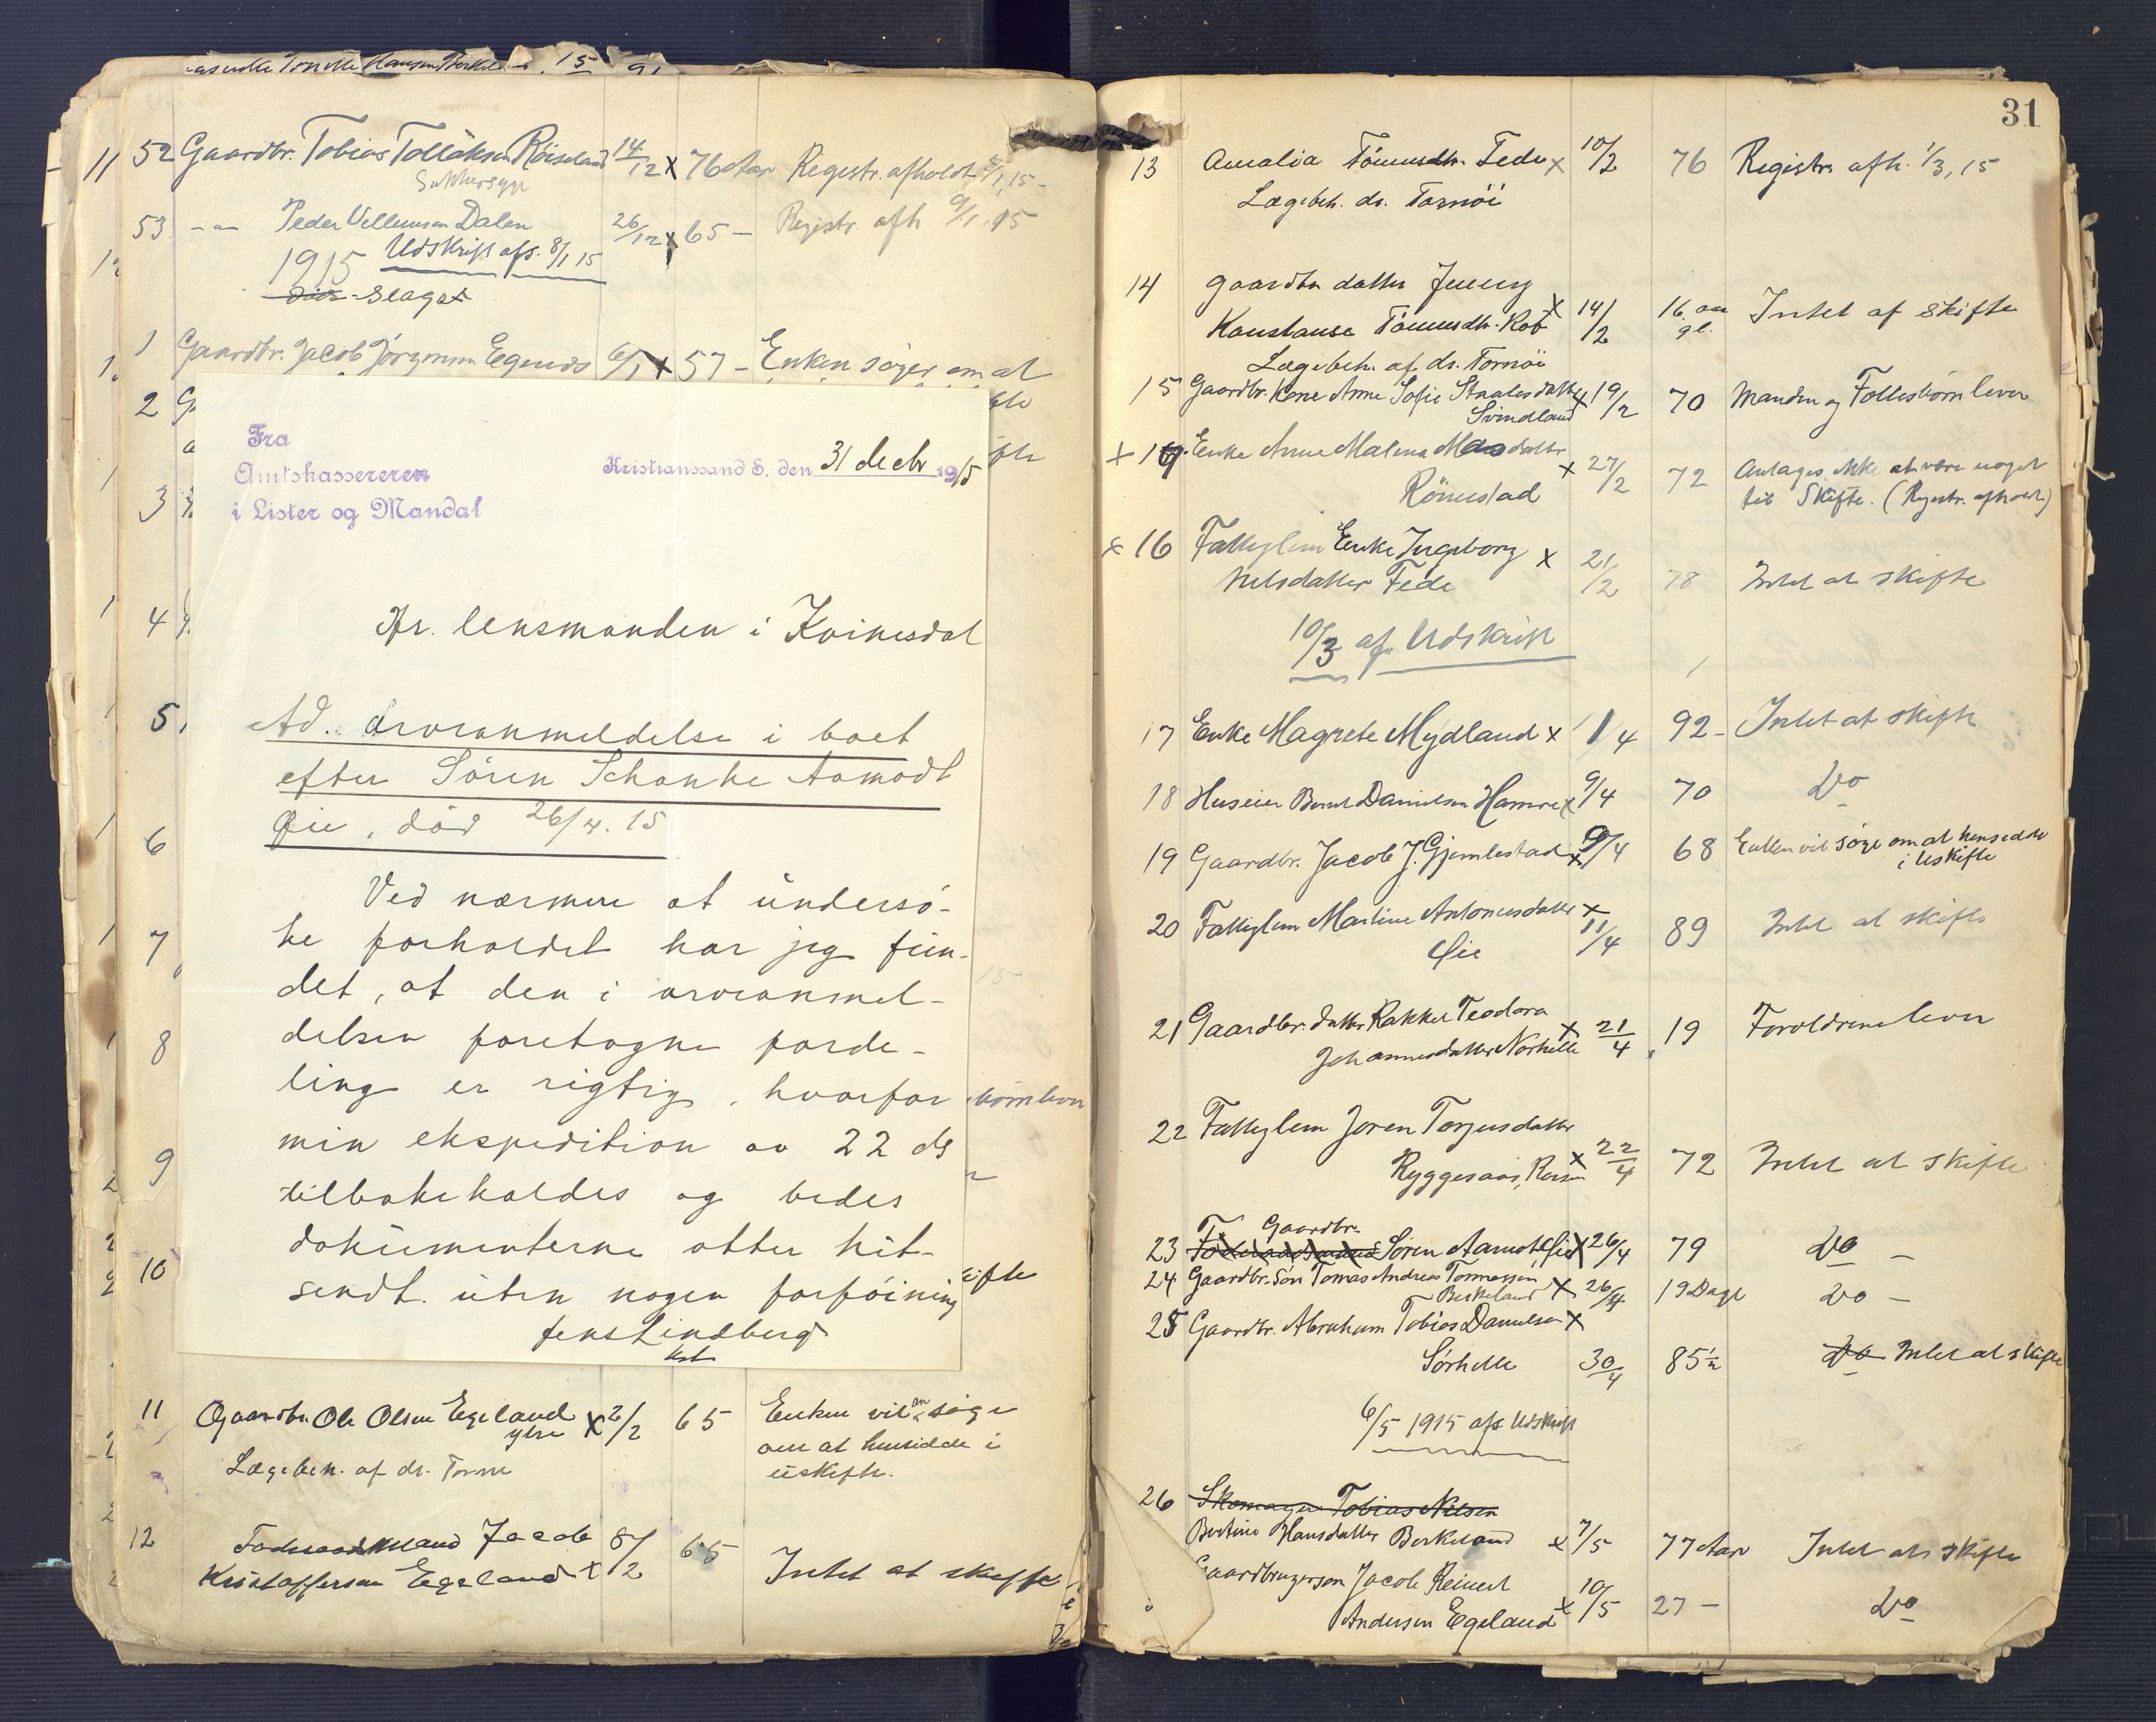 11 52 Gaardbr. Tobias Tollaksen Røiseland 14/12 x 76 Aar Registr. afholdt 5/1, 15 -
Sukkersyge
53 -"- Peder Villumsen Dalen 26/12 x 65 - Registr. afh 9/1. 15
1915 Udskrift afs. 8/1 15
Slaget
1 Gaardbr. Jacob Jørgensen Egenes 6/1 x 57 - Enken søger om at
2 G
3
4
5
6
7
8
9
10 ifte
Fra
Amtskassereren
i Lister og Mandal
Kristianssand S. den 31 decbr 1915
Hr. lensmanden i Kvinesdal
Ad. arveanmeldelse i boet
efter Sören Schanke Aamodt
Øie, död 26/4. 15
Ved nærmere at undersö-
ke forholdet har jeg fun-
det, at den i arveanmel-
delsen foretagne forde-
ling er rigtig, hvorfor
min ekspedition av 22 ds
tilbakekaldes og bedes
dokumenterne atter hit-
sendt uten nogen forföining
Jens Lindberg
kst
börn lever
11 Gaardbr. Ole Olsen Egeland x 2/2 65 Enken vil ansøge
ytre om at hensidde i
Lægebeh. af dr. uskifte.
12 Føderaadsmand Jacob 8/2 65
Kristoffersen Egeland x Intet at skifte
31
13 Amalia Tönnesdtr. Fede x 10/2 76 Registr. afh. 1/3, 15
Lægebeh. dr. Tornöi
14 Gaardbr datter Jenny
Konstanse Tönnesdtr. x 14/2 16 aar gl. Intet at skifte
Lægebeh. af dr. Tornöi
15 Gaardbr. Kone Anne Sofie Staalesdatter x 19/2 70 Manden og Fællesbörn lever
Svindland
x 19. Enke Anne Malena Madsdatter x 27/2 72 Antages ikke at være noget
Rönnestad til Skifte. (Registr. afholdt)
x 16 Fattiglem Enke Ingeborg x 21/2 78 Intet at skifte
Nelsdatter Fede
10/3 afs. Udskrift
17 Enke Magrete Mydland x 1/4 92 - Intet at skifte
18 Huseier Bernt Danielsen Hamre x 9/4 70 Do
19 Gaardbr. Jacob J. Gjemlestad x 9/4 68 Enken vil søge om at hensidde
i Uskifte
20 Fattiglem Martine Antonesdatter x 11/4 89 Intet at skifte
Øie
21 Gaardbr. datter Rakkel Teodora
Johannesdatter Norhelle x 21/4 19 Forældrene lever
22 Fattiglem Joren Torjusdatter
Ryggesaas, x 22/4 72 Intet at skifte
Gaardbr.
23 Føderaadsmand Sören Aamodt Øie x 26/4 79 Do -
24 Gaardbr. Søn Tomas Andreas Tønnessen
Berkeland x 26/4 19 Dage Do -
25 Gaardbr. Abraham Tobias Danielsen x
Sørhelle 30/4 85½ Do Intet at skifte
6/5 1915 afs Udskrift
26 Skomager Tobias Nilsen
Bertine Hansdatter Berkeland x 7/5 77 Aar Intet at skifte
Gaardbrugersøn Jacob Reinert
Andersen Egeland x 10/5 27 - Do